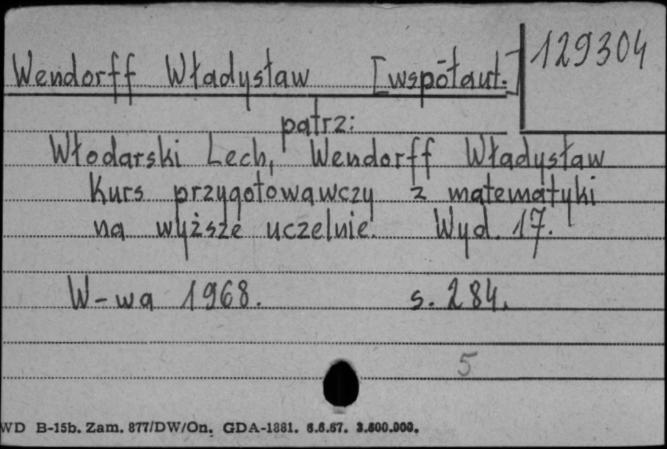 Wendorff Władysław [współaut.] 129304
patrz:
Włodarski Lech, Wendorff Władysław
Kurs przygotowawczy z matematyki
na wyższe uczelnie. Wyd. 17.
W-wa 1968. s. 284.
5
WD B-15b. Zam. 877/DW/On. GDA-1881. 6.6.67. 3.600.000.